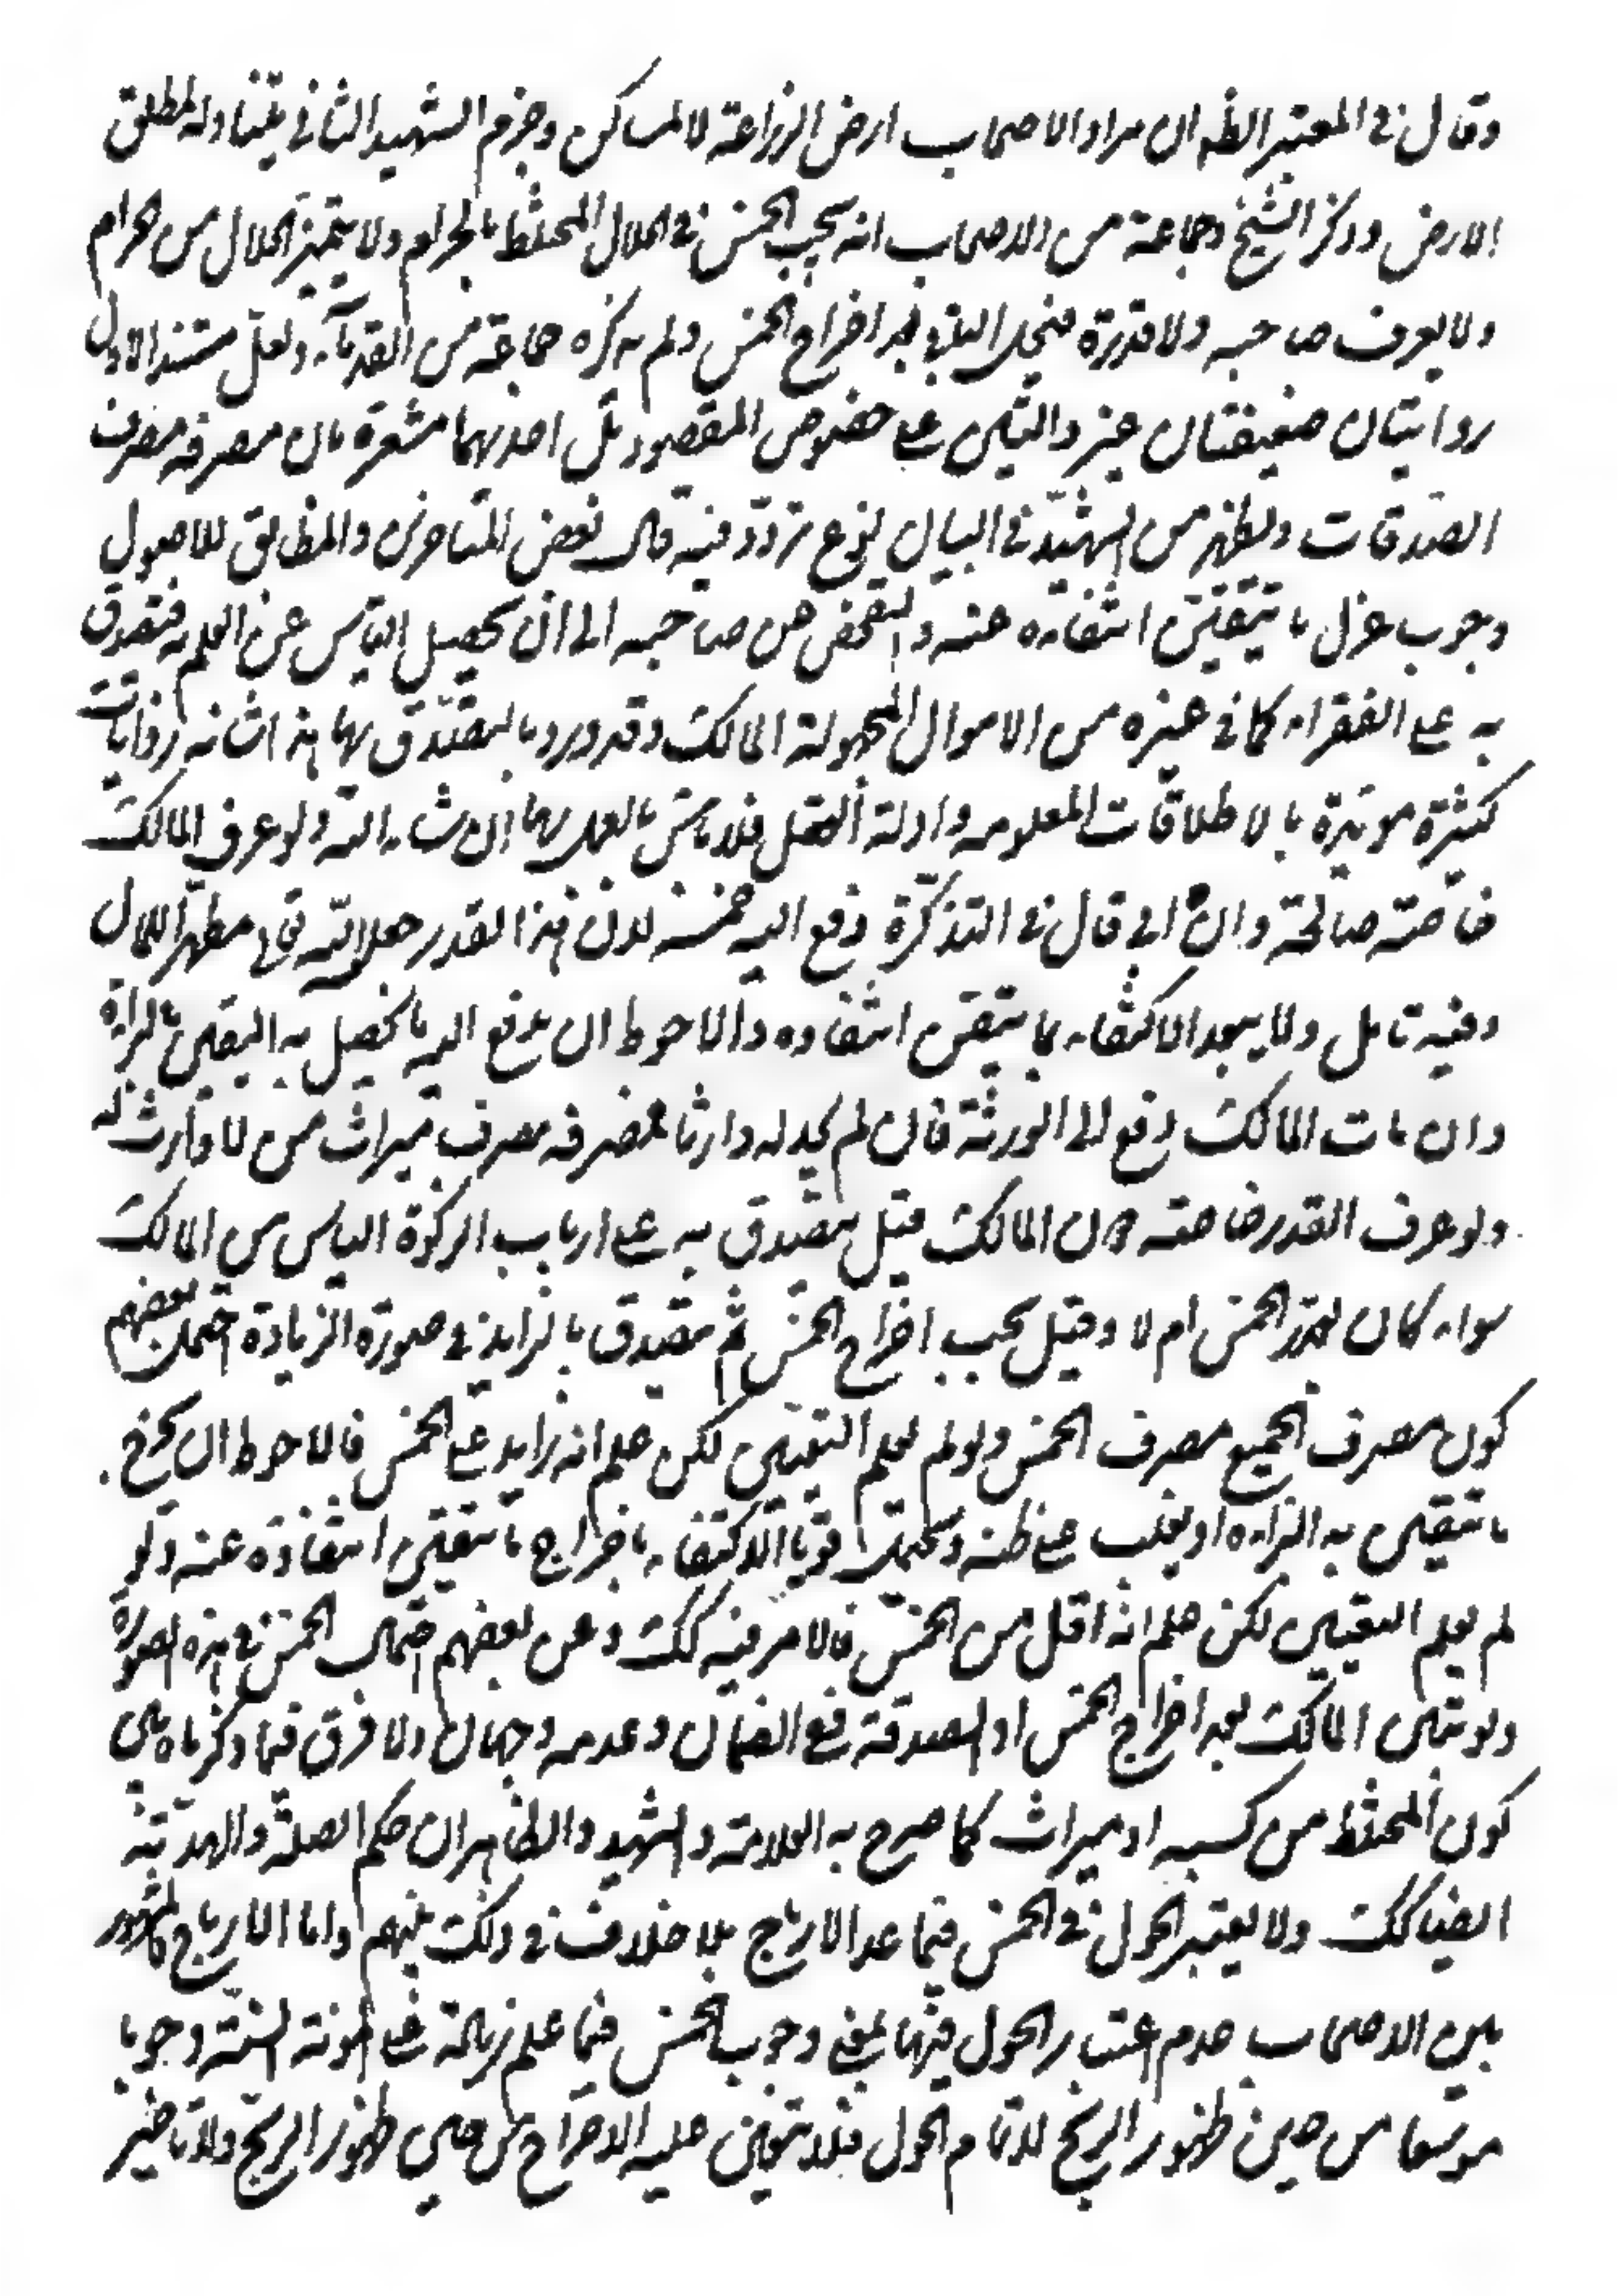 وقال في المعتبر الظ ان مراد الاصحاب ارض الزراعة لا المساكن وجزم الشهيد الثاني بتناوله لمطلق
الارض وذكر الشيخ وجماعة من الاصحاب انه يجب الخمس في الحلال المختلط بالحرام ولا يتميز الحلال من الحرام
ولا يعرف صاحبه ولا قدره فيحل الباقي بعد اخراج الخمس ولم يذكره جماعة من القدماء ولعل مستند الاول
روايتان ضعيفتان غير دالتين على خصوص المقصود بل احدهما مشعرة بان مصرفه مصرف
الصدقات ويظهر من الشهيد في البيان نوع تردد فيه قال بعض المتاخرين والمطابق للاصول
وجوب عزل ما يتيقن انتفاءه عنه والتفحص عن صاحبه الى ان يحصل الياس عن العلم به فيتصدق
به على الفقراء كما في غيره من الاموال المجهولة المالك وقد ورد بالتصدق بها هذا شانه روايات
كثيرة مويدة بالاطلاقات المعلومه وادلة العقل فلا باس بالعمل بها ان شاء الله ولو عرف المالك
خاصة صالحه وان ابى قال في التذكرة دفع اليه خمسه لان هذا القدر جعله الله تعالى مطهرا للمال
وفيه تامل ولا يبعد الاكتفاء بما يتيقن انتفاءه والاحوط ان يدفع اليه ما يحصل به اليقين بالبراءة
وان مات المالك دفع الى الورثة فان لم يجد له وارثا فمصرفه مصرف ميراث من لا وارث له
ولو عرف القدر خاصة دون المالك قيل يتصدق به على ارباب الزكوة الياس من المالك
سواء كان بقدر الخمس ام لا وقيل يجب اخراج الخمس ثم يتصدق بالزايد في صورة الزيادة احتمل بعضهم
كون مصرف الجميع مصرف الخمس ولو لم يعلم التعيين لكن علم انه زايد على الخمس فالاحوط ان يخرج
ما يتيقن به البراءه او يغلب على ظنه ويحتمل قويا الاكتفاء باخراج ما تيقن انتفاؤه عنه ولو
لم يعلم التعيين لكن علم انه اقل من الخمس فالامر فيه كك وعن بعضهم احتمال الخمس في هذه الصورة
ولو تبين المالك بعد اخراج الخمس او الصدقة ففي الضمان وعدمه وجهان ولا فرق فيما ذكرناه بين
كون المختلط من كسبه او ميراث كما صرح به العلامة والشهيد والظاهر ان حكم الصلة والهدية
ايضا كك ولا يعتبر الحول في الخمس فيما عدا الارباح بلا خلاف في ذلك بينهم واما الارباح فالمشهور
بين الاصحاب عدم اعتبار الحول فيها بمعنى وجوب الخمس فيما علم زيادته على مونة السنة وجوبا
موسعا من حين ظهور الربح لا تمام الحول فلا يتعين عليه الاخراج من حين ظهور الربح ولا تاخير